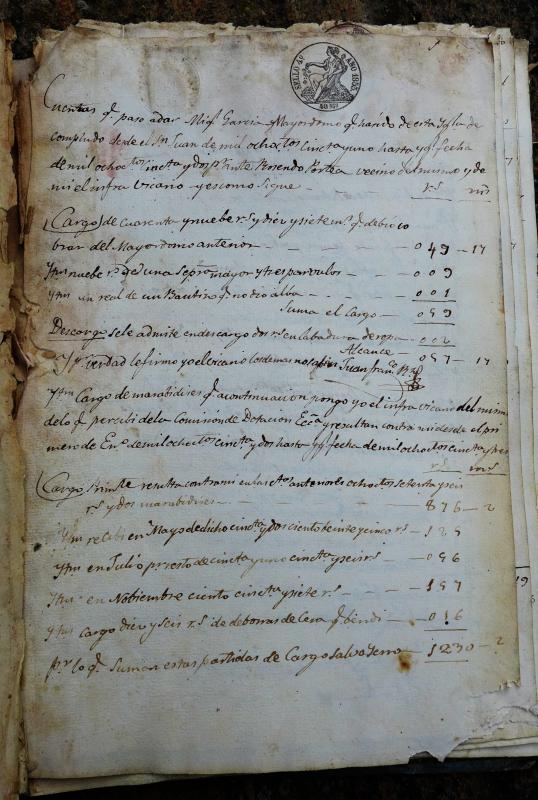 SELLO 4º AÑO 1853.
40 MRS
Cuentas q. paso a dar Migl. Garcia Mayordomo q. ha sido de esta Yglª. de
complido desde el Sn. Juan de mil ochoctos. cincta. y uno hasta fecha
de mil ochoctos. cincta. y dos vecino del mismo y de
mi el infra Vicario y es como sigue rs. mrs
Cargo) de cuarenta y nuebe rs. y diez y siete ms. q. debió co
brar del Mayordomo anterior 049 - 17
Ytm nuebe rs. de una Sepra. mayor y tres parvulos 009
Ytm un real de un Bautizo q. no dio alba 001
Suma el Cargo 059
Descargo se le admite en descargo dos rs. en labadura de ropa 002
Alcance 057 - 17
Y pr. verdad lo firmo yo el Vicario los demas no saben Juan Franco.
Ytm Cargo de marabidises q. a continuacion pongo yo el infra Vicario del mismo
de lo q. percibi de la Comision de Dotacion Ecca. y resultan contra mi desde el pri
mero de Eno. de mil ochoctos. cincta. y dos hasta fecha de mil ochoctos. cincta. y tres
rs. mrs
Cargo resulta contra mi en las ctas. anteriores ochoctos. setenta y seis
rs. y dos marabidises 876 - 2
Ytm recibi en Mayo de dicho cincta. y dos ciento beinte y cinco rs. 125
Ytm en Julio pr. resto de cincta. y uno cincta. y seis rs. 056
Ytm en Nobiembre ciento cincta. y siete rs. 157
Ytm Cargo diez y seis rs. de de borras de Cera q. bendi 016
pr. lo q. Suman estas partidas de Cargo salvo yerro 1230 - 2